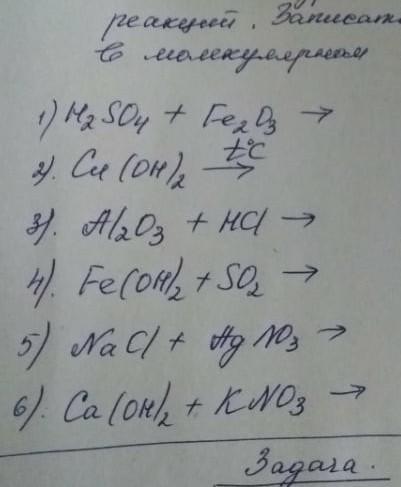 реакций. Записать
в молекулярном
1) H₂SO₄ + Fe₂O₃ →
t°C
2). Cu(OH)₂ →
3). Al₂O₃ + HCl →
4). Fe(OH)₂ + SO₂ →
5) NaCl + AgNO₃ →
6). Ca(OH)₂ + KNO₃ →
Задача.